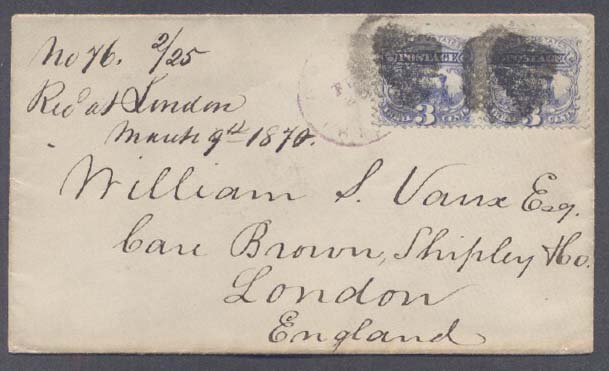 No 76. 2/25
Rec'd at London
March 9th 1870.
POSTAGE POSTAGE
3 3
William S. Vaux Esq.
Care Brown, Shipley & Co.
London
England